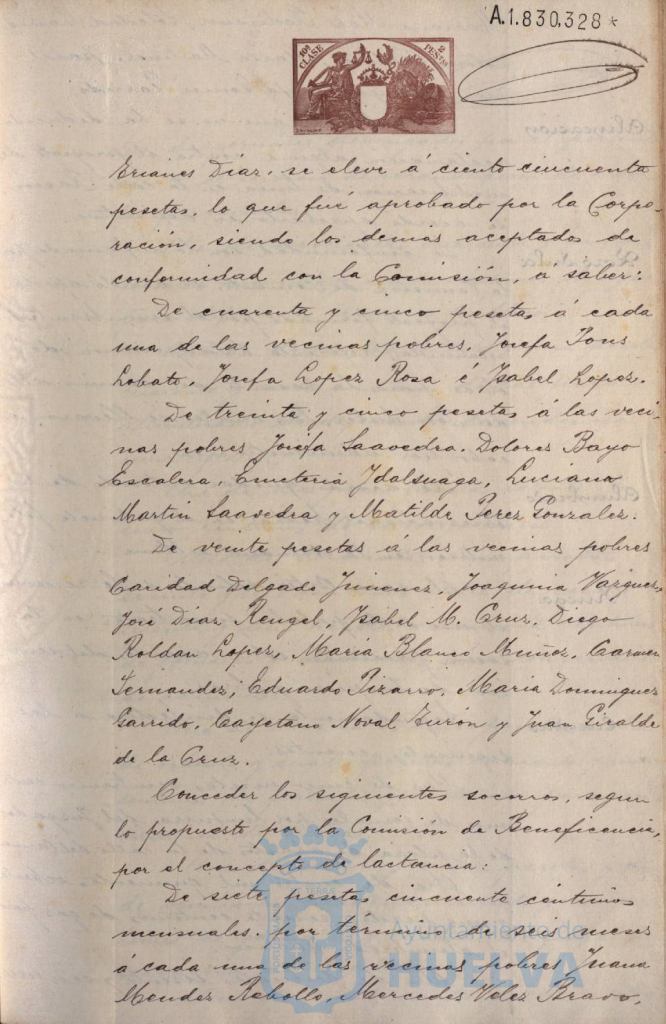 A.1.830,328 *
10ª CLASE
2 PESTAS
Erianes Díaz, se eleve á ciento cincuenta
pesetas, lo que fué aprobado por la Corpo-
ración, siendo los demás aceptados de
conformidad con la Comisión, a saber:
De cuarenta y cinco pesetas á cada
una de las vecinas pobres, Josefa Pons
Lobato, Josefa Lopez Rosa é Isabel Lopez.
De treinta y cinco pesetas á las veci-
nas pobres Josefa Saavedra, Dolores Bayo
Escalera, Emeteria Luciana
Martin Saavedra y Matilde Perez Gonzalez.
De veinte pesetas á las vecinas pobres
Caridad Delgado Jimenez, Joaquina Vazquez,
José Diaz Rengel, Isabel M. Cruz, Diego
Roldan Lopez, Maria Blanco Muñoz, Carmen
Fernandez, Eduardo Pizarro, Maria Dominguez
Garrido, Cayetano Noval Zurón y Juan Giralde
de la Cruz.
Conceder los siguientes socorros, segun
lo propuesto por la Comisión de Beneficencia,
por el concepto de lactancia:
De siete pesetas cincuenta centimos
mensuales, por término de seis meses
á cada una de las vecinas pobres Juana
Mendez Rebollo, Mercedes Velez Bravo,
Ayuntamiento de
HUELVA